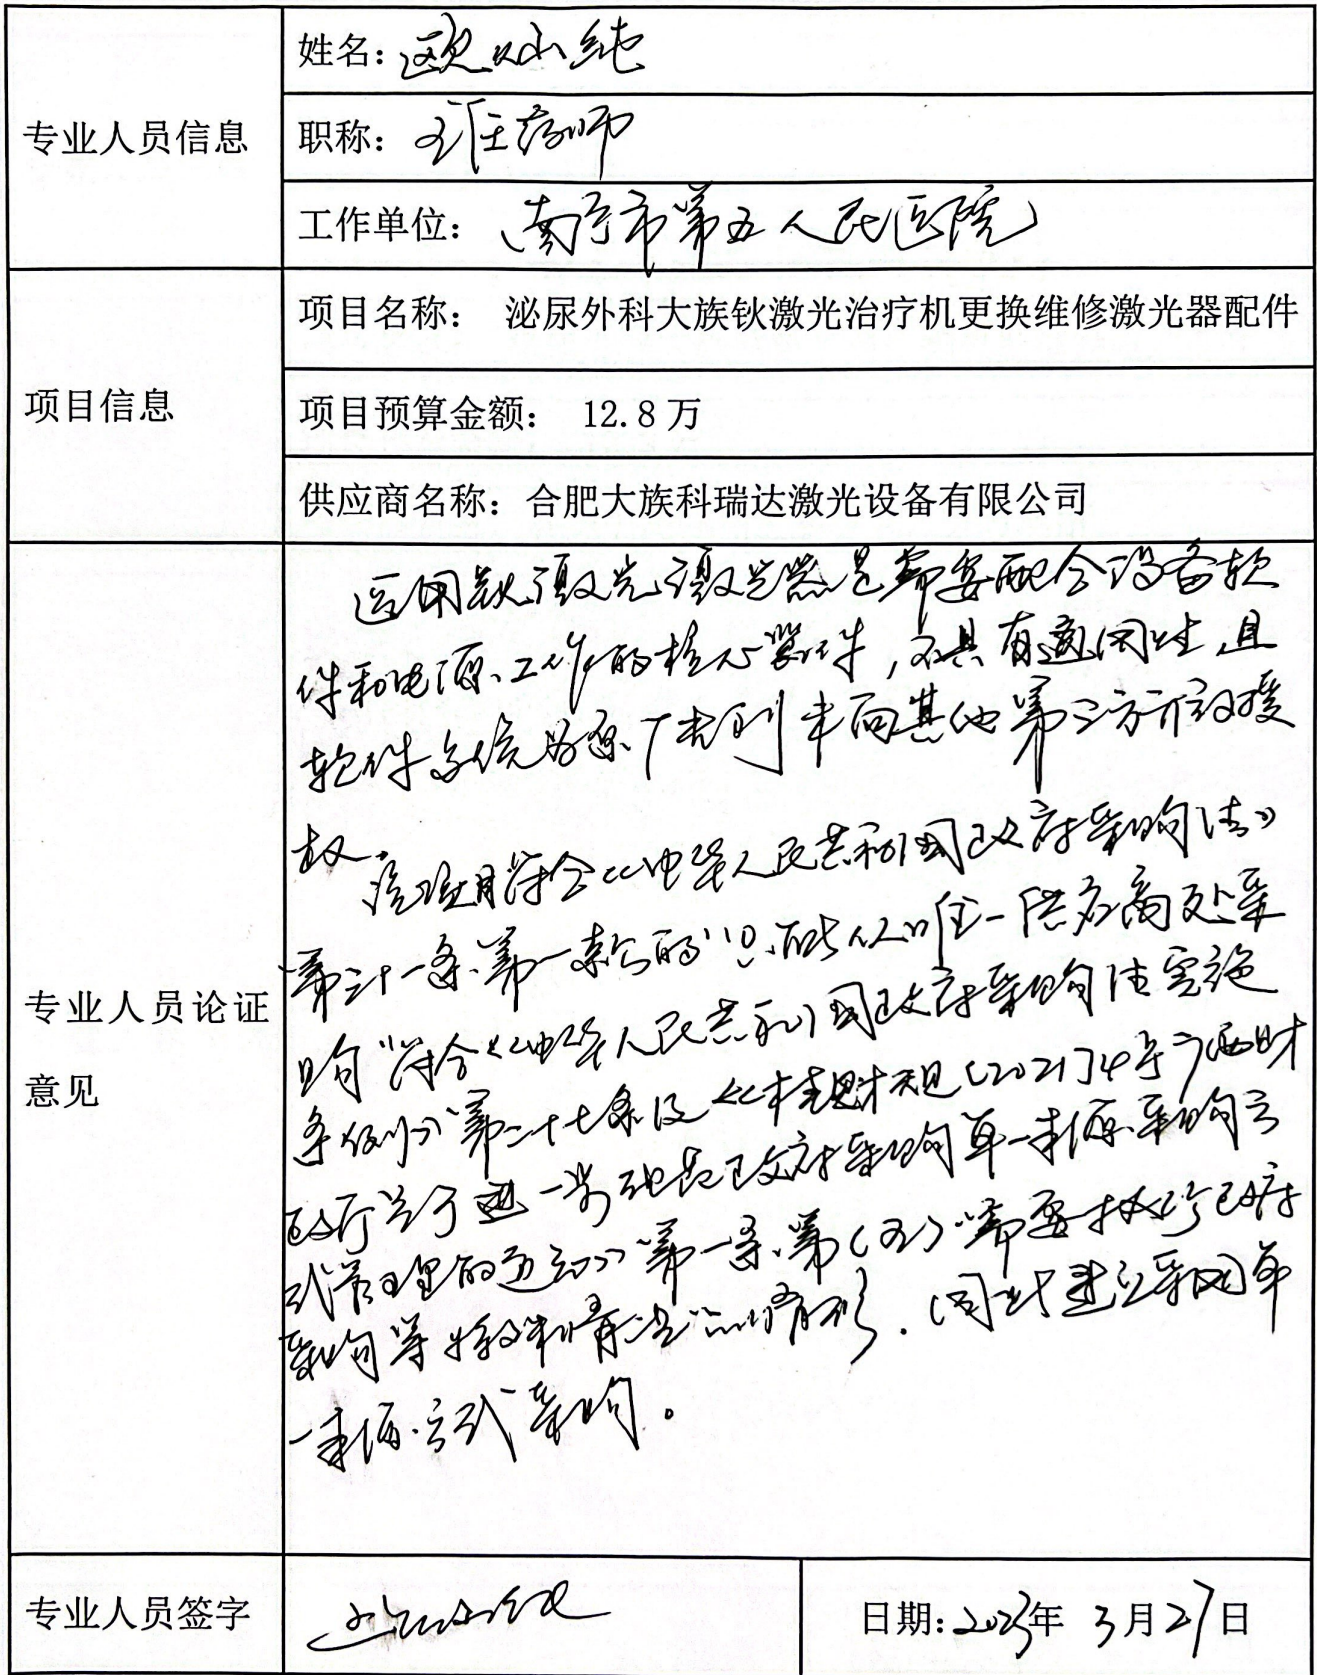 专业人员信息
姓名：欧灿纯
职称：主任药师
工作单位：南宁市第五人民医院
项目信息
项目名称： 泌尿外科大族钬激光治疗机更换维修激光器配件
项目预算金额： 12.8万
供应商名称：合肥大族科瑞达激光设备有限公司
专业人员论证
意见
医用钬激光激光器是需要配合设备软
件和电源工作的核心器件，不具有通用性，且
软件系统为原厂专利未向其他第三方开放授
权。
该项目符合《中华人民共和国政府采购法》
第三十一条第一款的“只能从唯一供应商处采
购”符合《中华人民共和国政府采购法实施
条例》第二十七条及《桂财规〔2021〕4号广西财
政厅关于进一步规范政府采购单一来源采购方
式管理的通知》第一条第（五）需要执行政府
采购等特殊情况的情形．因此建议采用单
一来源方式采购。
专业人员签字
日期：2023年 3月27日